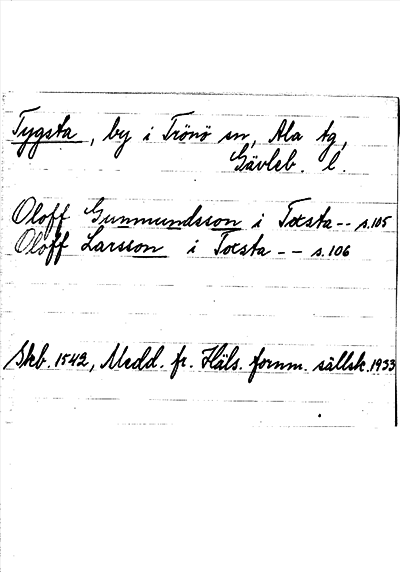 Tygsta, by i Trönö sn, Ala tg,
Gävleb. l.
Oloff Gunmundsson i Toxsta -- s.105
Oloff Larsson i Toxsta -- s.106
Skb. 1542, Medd. fr. Häls. fornm. sällsk. 1933